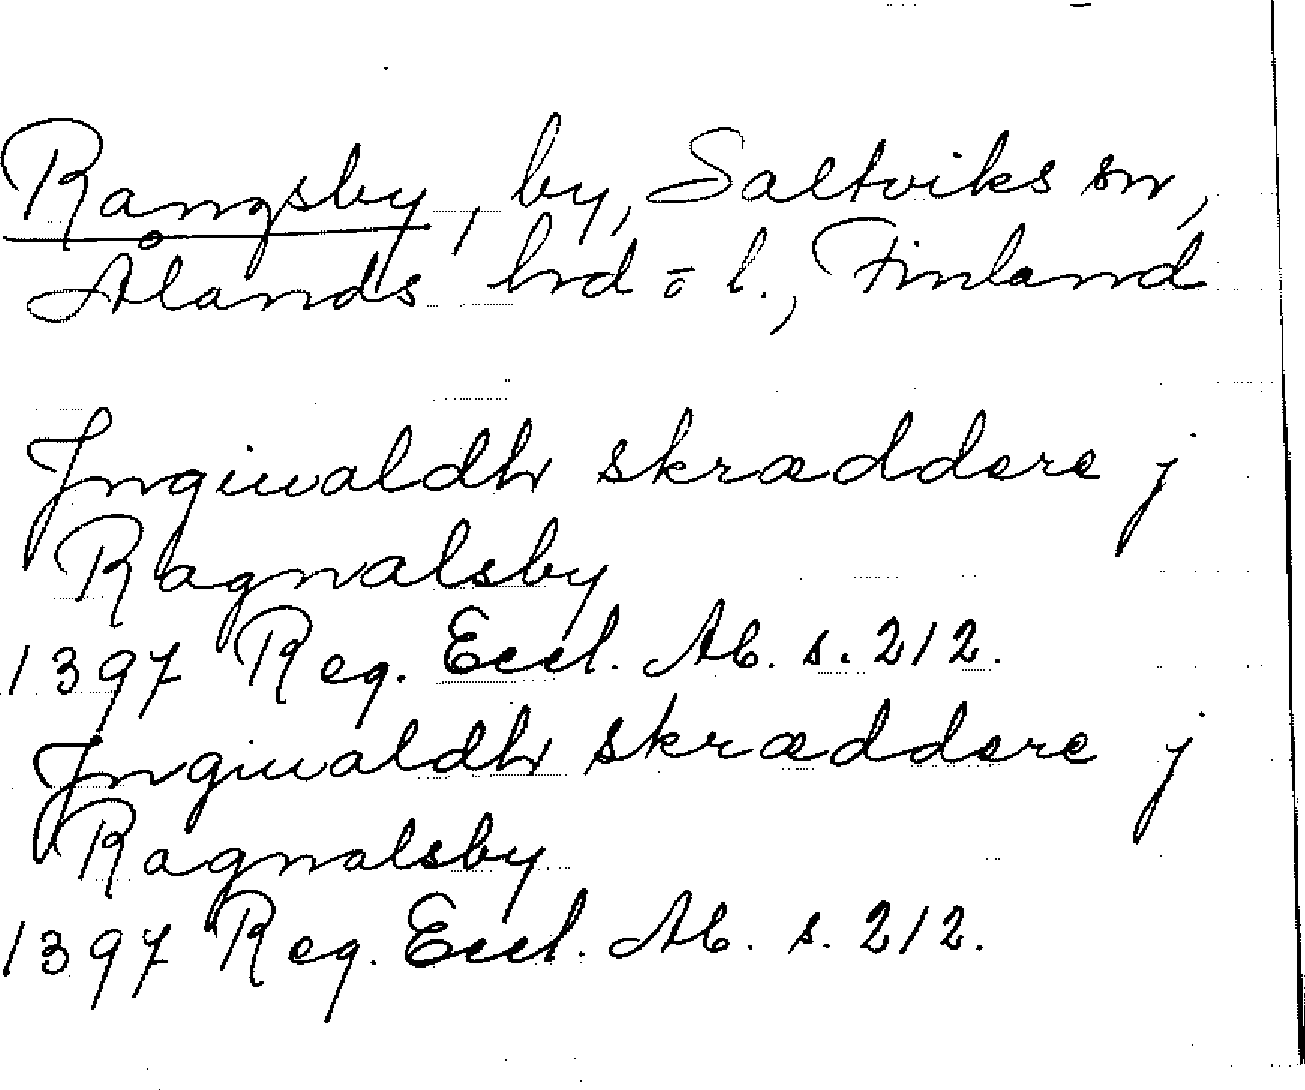 Rangsby, by, Saltviks sn,
Ålands hrd o l., Finland
Jngiuvaldhr skræddere j
Ragnalsby
1397 Reg. Eccl. Ab. s. 212.
Jngiuvaldhr skræddere j
Ragnalsby
1397 Reg. Eccl. Ab. s. 212.